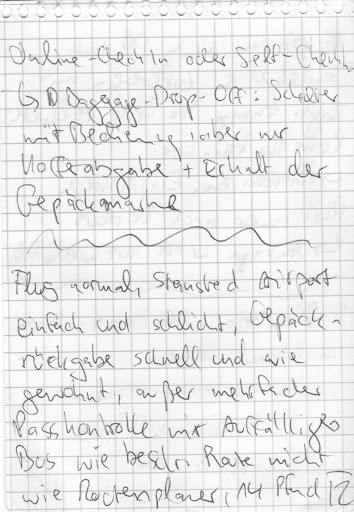 Online-CheckIn oder Self-CheckIn
↳ Baggage-Drop-Off: Schalter
mit Bedienung, aber nur
Kofferabgabe + Erhalt der
Gepäckmarke
Flug normal, Stansted Airport
einfach und schlicht, Gepäck-
rückgabe schnell und wie
gewohnt, außer mehrfacher
Passkontrolle nix Auffälliges
Bus wie Route nicht
wie Routenplaner, 14 Pfund 12